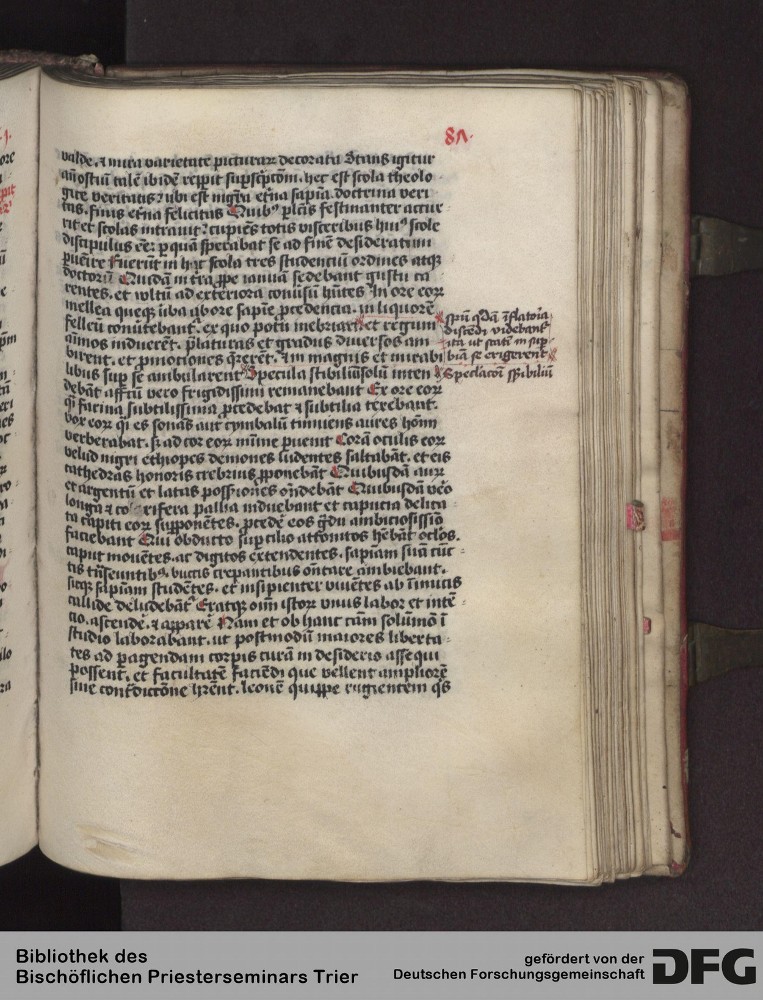 valde. ⁊ mira varietate picturaꝝ decorata Stans igitur
añ ostiũ talẽ ibidẽ repꝑit suꝑscͥptõm. hec est scola theolo
gice veritatis ⁊ ubi est nigra etña sapĩa. doctrina veri
tas. finis etña felicitas Quibꝰ ꝑlẽis festinanter accur
rit et scolas intrauit ⁊ cupiẽs totis visceribus huiꝰ scole
discipulus eẽ. ꝑ quã sperabat se ad finẽ desideratum
puẽire Fuerũt in hac scola tres studenciũ ordines atqꝫ
doctorũ Quidã intra ꝓpe ianuã sedebant gustu ca
rentes. et vultũ ad exteriora cõuisũ hñtes In ore eoꝝ
mellea queqꝫ ũba ab ore sapie ꝓcedencia. in liquorẽ
felleũ cõuitebantᷣ. ex quo potu inebriari et regum
aĩmos induerẽt. p̃laturas et gradus diuersos am
birent. et ꝓmotiones q̃rerẽt. ⁊ in magnis et mirabi
libus suꝑ se ambularent Specula stibiliũ solũ inten
debãt affcũ vero frigidissimi remanebant Ex ore eoꝝ
qͥ farina subtilissima ꝓcedebat ⁊ subtilia terebant.
vox eoꝝ qͥ es sonãs aut cymbalũ tinniens aures hõim
verberabat. sꝫ ad cor eoꝝ mĩme puenit Corã oculis eoꝝ
velud nigri ethiopes demones ludentes saltabãt. et eis
cathedras honoris crebrius ꝓponebãt Quibusdã auꝝ
et argentũ et latas possꝑiones oñdebãt Quibusdã veo
longa ⁊ rifera palba induebant et capucia delica
ta capiti eoꝝ supponẽtes. p̃cedẽ eos gͣdu ambiciosissiõ
faciebant Qui obducto supcilio attonitos hẽbãt oclõs.
caput mouẽtes. ac digitos extendentes. sapiam suã cũc
tis trñseuntibꝰ. buccis crepantibus oñtare ambiebant.
sicqꝫ sapiam studẽtes. et insipienter viuẽtes ab inimicis
callide deludebãtᷣ Eratqꝫ oĩm istoꝝ vnus labor et intẽ
tio. ascendẽ. ⁊ apparẽ Nam et ob hanc cãm solũmõ ĩ
studio laborabant. ut postmodũ maiores liberta
tes ad ꝑagendam corpis curã in desiderio assequi
possent. et facultatẽ faciẽdi que vellent ampliorẽ
sine contͣdictõne hr̃ent. leonẽ quiꝓpe rugientem qͣs
sp̃ũ qͦdã ĩflatoia
discẽdi videbantᷣ
ita ut statĩ in suꝑ
biã se erigerent
Speclacõi sꝑibiliũ
Bibliothek des
Bischöflichen Priesterseminars Trier
gefördert von der
Deutschen Forschungsgemeinschaft
DFG